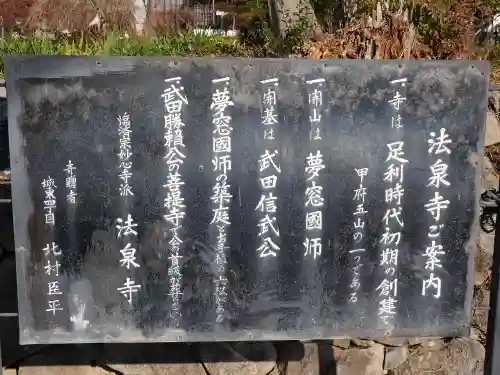 法泉寺ご案内
一寺は足利時代初期の創建で
甲府五山の一つである
一開山は夢窓國师
一開基は武田信武公
一夢窓國师の築庭と
一武田勝頼公の菩提寺で公の首級が
臨済宗妙心寺派 法泉寺
寄贈者
城東四丁目 北村臣平